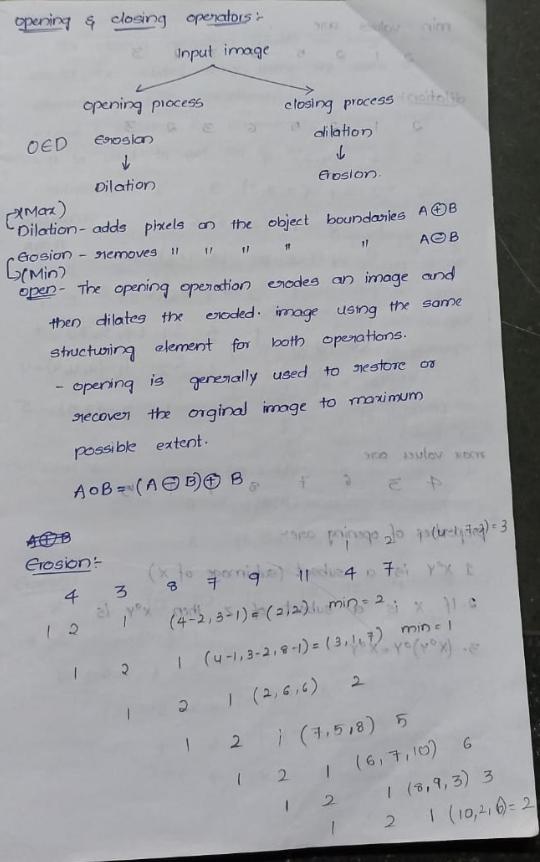 opening & closing operators:-
Input image
opening process closing process
OED Erosion dilation
↓ ↓
Dilation Erosion.
(Max)
Dilation - adds pixels on the object boundaries A⊕B
Erosion - removes " " " " " A⊖B
(Min)
open - The opening operation erodes an image and
then dilates the eroded. image using the same
structuring element for both operations.
- opening is generally used to restore or
recover the orginal image to maximum
possible extent.
A∘B = (A⊖B)⊕ B
A⊕B
Erosion:-
4 3 8 7 9 11 4 7
1 2 1 (4-2, 3-1) = (2,2) min = 2
1 2 1 (4-1, 3-2, 8-1) = (3,1,7) min = 1
1 2 1 (2,6,6) 2
1 2 1 (7,5,8) 5
1 2 1 (6,7,10) 6
1 2 1 (8,9,3) 3
1 2 1 (10,2,6) = 2